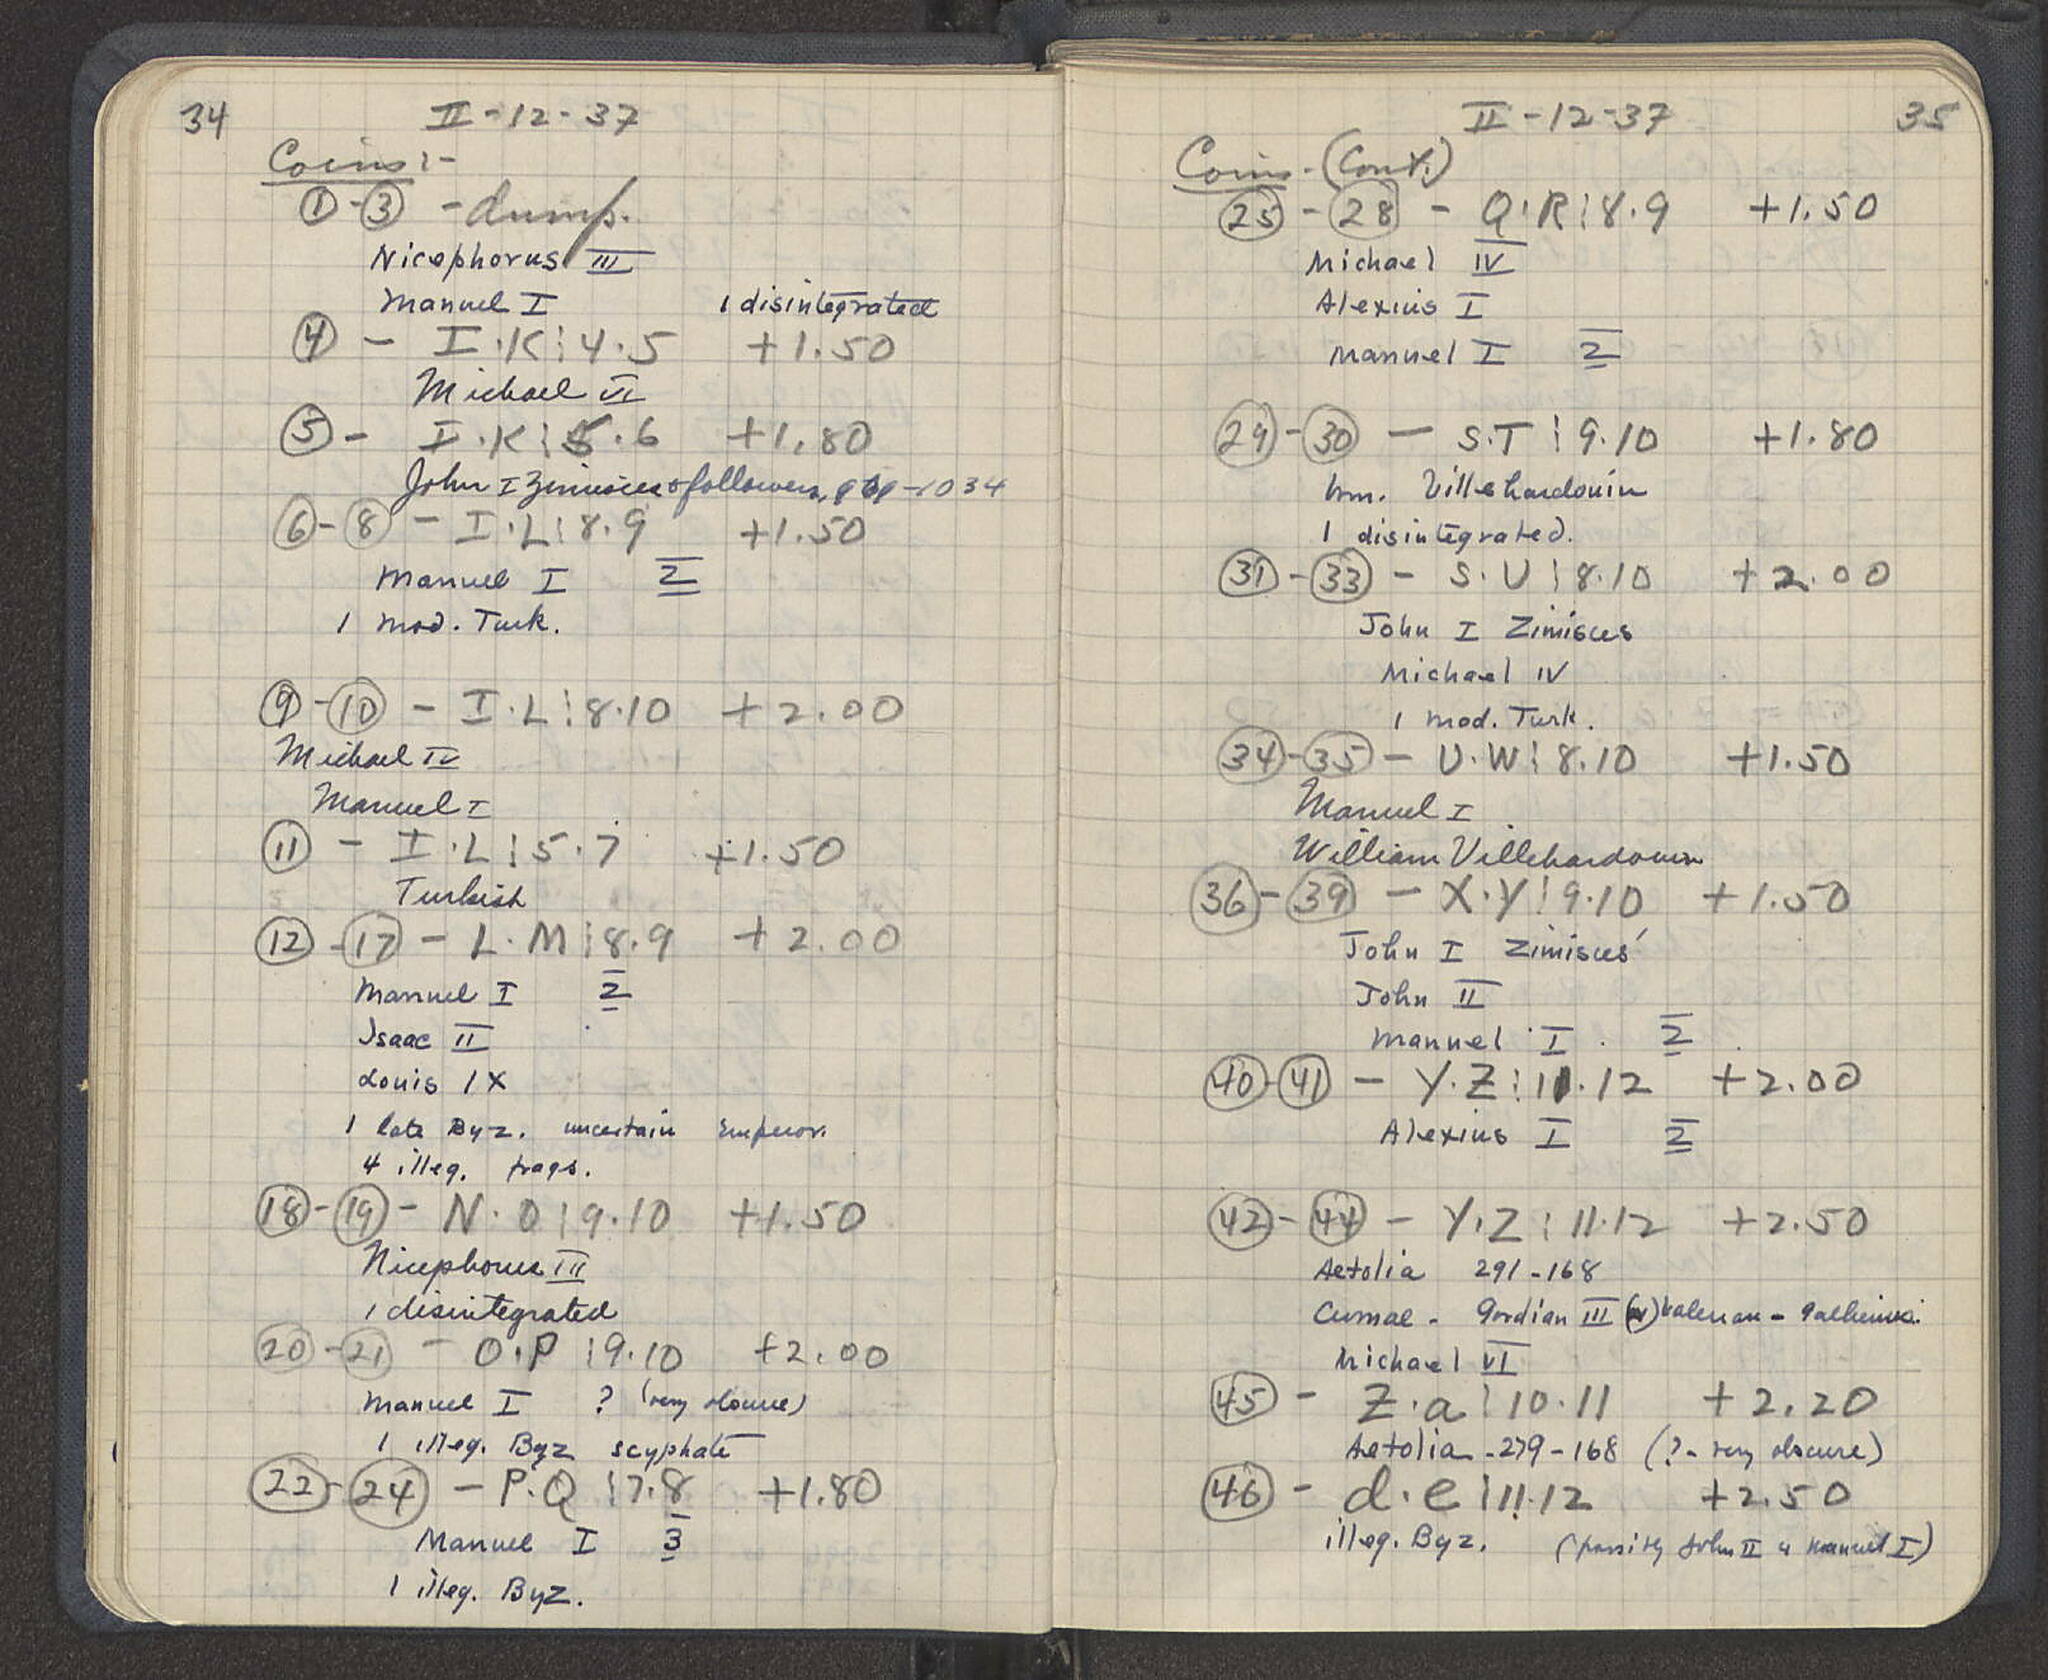 34
II-12-37
Coins:-
1-3 - dump.
Nicephorus III
Manuel I 1 disintegrated
4 - I.K:4.5 +1.50
Michael VI
5 - I.K:5.6 +1.80
John I Zimisces & followers, 969-1034
6-8 - I.L:8.9 +1.50
Manuel I 2
1 mod. Turk.
9-10 - I.L:8.10 +2.00
Michael IV
Manuel I
11 - I.L:5.7 +1.50
Turkish
12-17 - L.M:8.9 +2.00
Manuel I 2
Isaac II
Louis IX
1 late Byz. uncertain Emperor.
4 illeg. frags.
18-19 - N.O:9.10 +1.50
Nicephorus III
1 disintegrated
20-21 - O.P:9.10 +2.00
Manuel I ? (very obscure)
1 illeg. Byz scyphate
22-24 - P.Q:7.8 +1.80
Manuel I 3
1 illeg. Byz.
II-12-37
35
Coins-(Cont.)
25-28 - Q.R:8.9 +1.50
Michael IV
Alexius I
Manuel I 2
29-30 - S.T:9.10 +1.80
Wm. Villehardouin
1 disintegrated.
31-33 - S.U:8.10 +2.00
John I Zimisces
Michael IV
1 mod. Turk.
34-35 - U.W:8.10 +1.50
Manuel I
William Villehardouin
36-39 - X.Y:9.10 +1.50
John I Zimisces
John II
Manuel I. 2
40-41 - Y.Z:11.12 +2.00
Alexius I 2
42-44 - Y.Z:11.12 +2.50
Aetolia 291-168
Cumae - Gordian III Valerian - Gallienus.
Michael VI
45 - Z.a:10.11 +2.20
Aetolia -279-168 (?- very obscure)
46 - d.e:11.12 +2.50
illeg. Byz. (possibly John II or Manuel I)